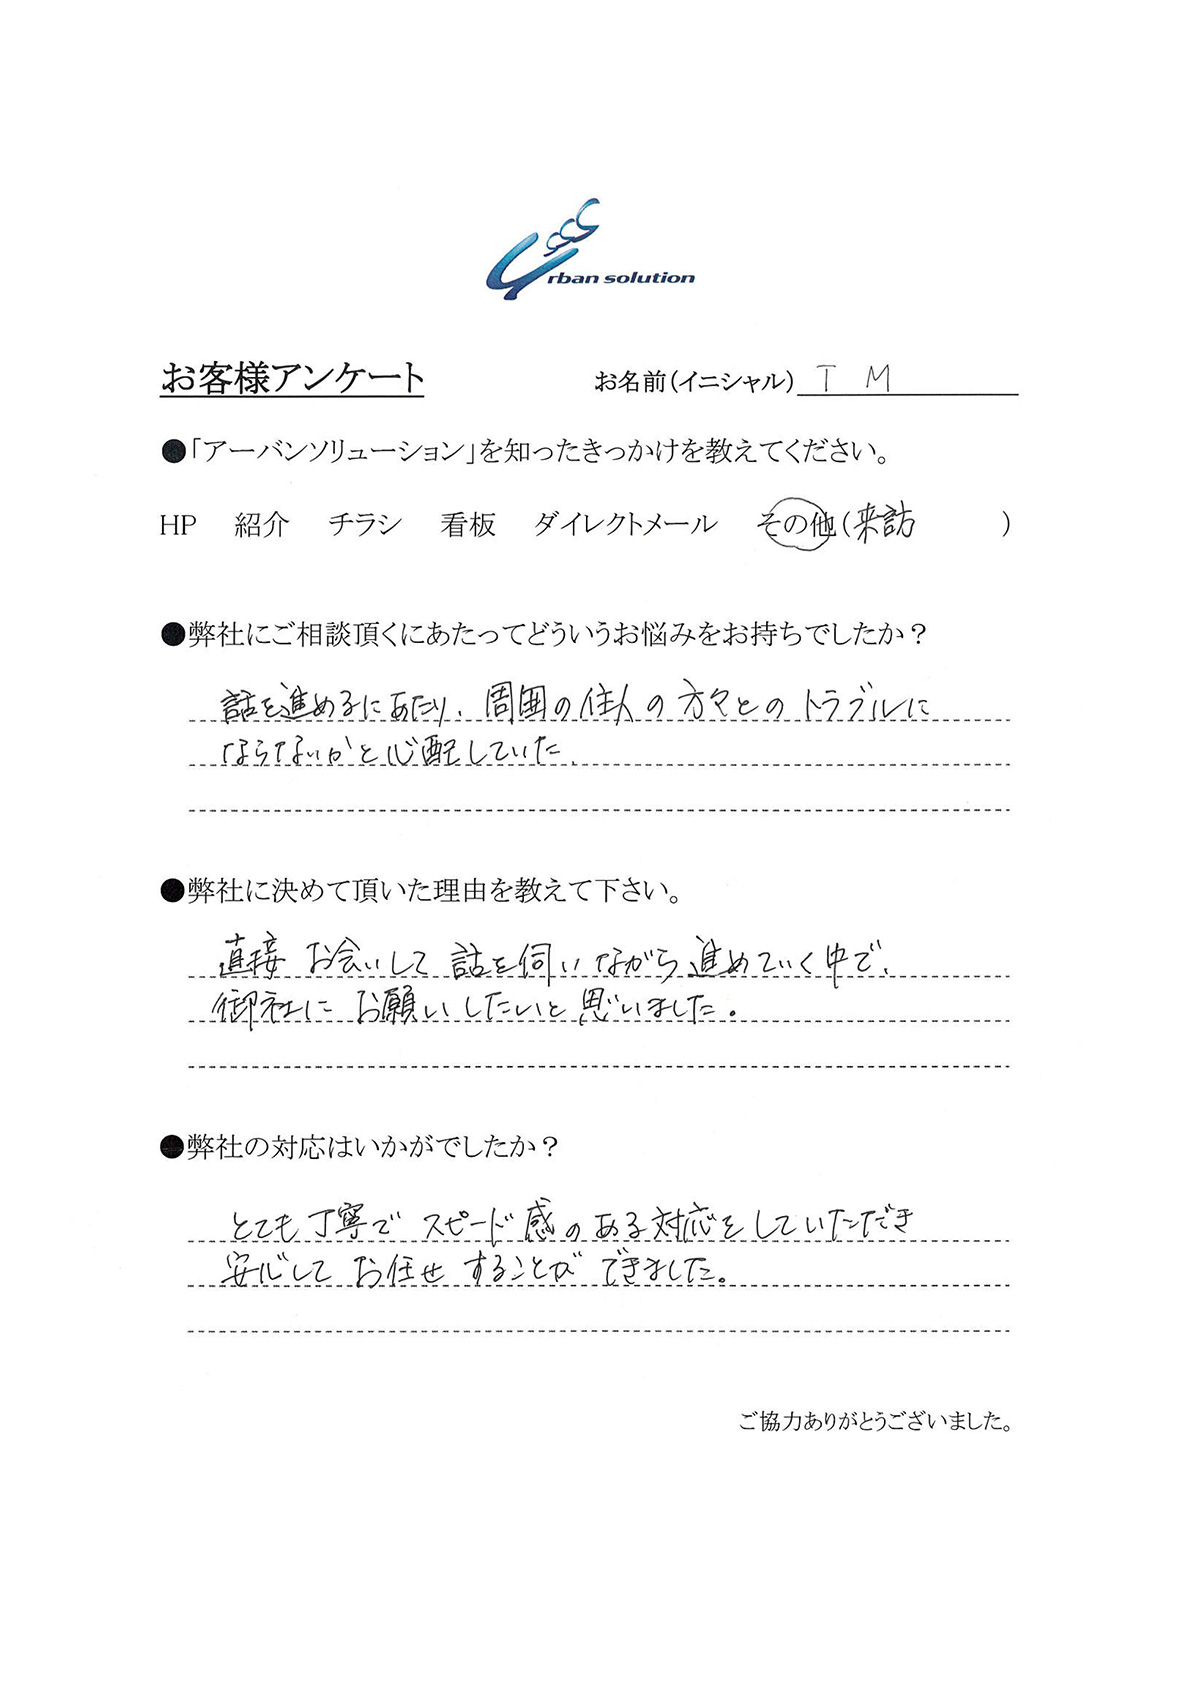 Urban solution
お客様アンケート お名前(イニシャル) T M
●「アーバンソリューション」を知ったきっかけを教えてください。
HP 紹介 チラシ 看板 ダイレクトメール その他(来訪 )
●弊社にご相談頂くにあたってどういうお悩みをお持ちでしたか?
話を進めるにあたり、周囲の住人の方々とのトラブルに
ならないかと心配していた、
●弊社に決めて頂いた理由を教えて下さい。
直接お会いして話を伺いながら進めていく中で、
御社にお願いしたいと思いました。
●弊社の対応はいかがでしたか?
とても丁寧でスピード感のある対応をしていただき
安心してお任せすることができました。
ご協力ありがとうございました。